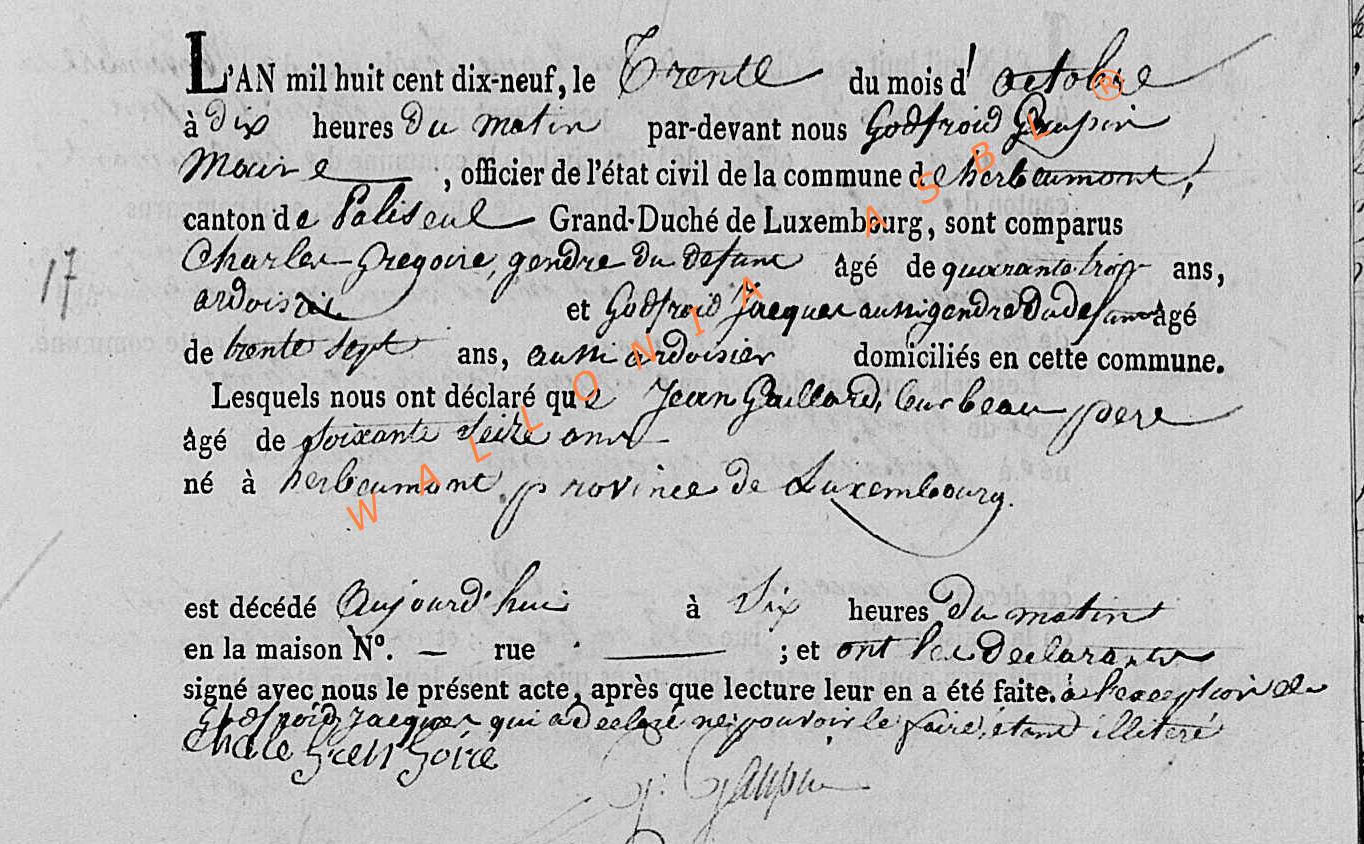 L'AN mil huit cent dix-neuf, le Trente du mois d'octobre
à dix heures Du matin par-devant nous Godfroid Gaupin
Maire, officier de l'état civil de la commune de herbeumont,
canton de Paliseul Grand-Duché de Luxembourg, sont comparus
Charles Gregoire, gendre du defunt âgé de quarante trois ans,
17
ardoisier et Godfroid Jacques aussi gendre du defunt âgé
de trente sept ans, aussi ardoisier domiciliés en cette commune.
Lesquels nous ont déclaré que Jean Gaillard, leur beau pere
âgé de soixante seize ans
né à herbeumont province de Luxembourg.
est décédé aujourd'hui à Six heures Du matin
en la maison N°. — rue — ; et ont les Declarants
signé avec nous le présent acte, après que lecture leur en a été faite. à l'exception de
Godfroid Jacques qui a declaré ne pouvoir le faire, étant illiteré
G. Gaupin
WALLONIA ASBL ®